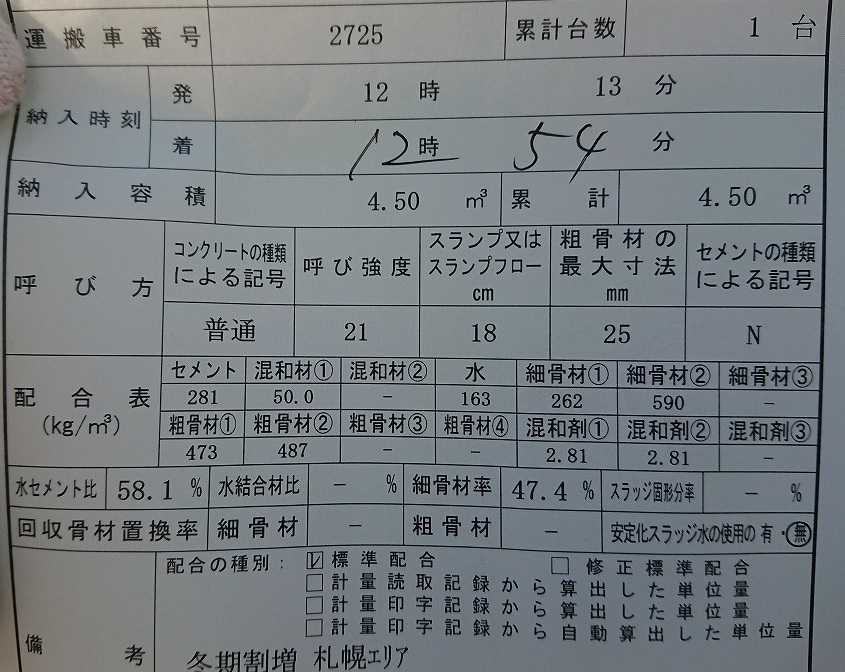 運搬車番号 2725 累計台数 1 台
納入時刻 発 12 時 13 分
着 12 時 54 分
納入容積 4.50 m³ 累計 4.50 m³
呼び方 コンクリートの種類による記号 呼び強度 スランプ又はスランプフロー cm 粗骨材の最大寸法 mm セメントの種類による記号
普通 21 18 25 N
配合表 (kg/m³) セメント 混和材① 混和材② 水 細骨材① 細骨材② 細骨材③
281 50.0 － 163 262 590 －
粗骨材① 粗骨材② 粗骨材③ 粗骨材④ 混和剤① 混和剤② 混和剤③
473 487 － － 2.81 2.81 －
水セメント比 58.1 % 水結合材比 － % 細骨材率 47.4 % スラッジ固形分率 － %
回収骨材置換率 細骨材 － 粗骨材 － 安定化スラッジ水の使用の有・無
備考 配合の種別： ☑標準配合 □修正標準配合
□計量読取記録から算出した単位量
□計量印字記録から算出した単位量
□計量印字記録から自動算出した単位量
冬期割増 札幌エリア